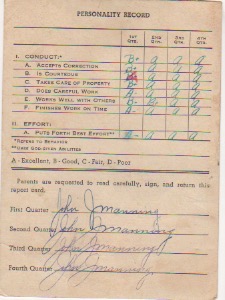 PERSONALITY RECORD
1ST QTR. 2ND QTR. 3RD QTR. 4TH QTR.
I. CONDUCT:*
A. ACCEPTS CORRECTION a a a
B. IS COURTEOUS a a a
C. TAKES CARE OF PROPERTY a a a
D. DOES CAREFUL WORK a a a
E. WORKS WELL WITH OTHERS a a
F. FINISHES WORK ON TIME a a a
II. EFFORT:
A. PUTS FORTH BEST EFFORT** a a a
*REFERS TO BEHAVIOR
**USES GOD-GIVEN ABILITIES
A - Excellent, B - Good, C - Fair, D - Poor
Parents are requested to read carefully, sign, and return this
report card.
First Quarter John J Manning
Second Quarter John J Manning
Third Quarter John J Manning
Fourth Quarter John J Manning